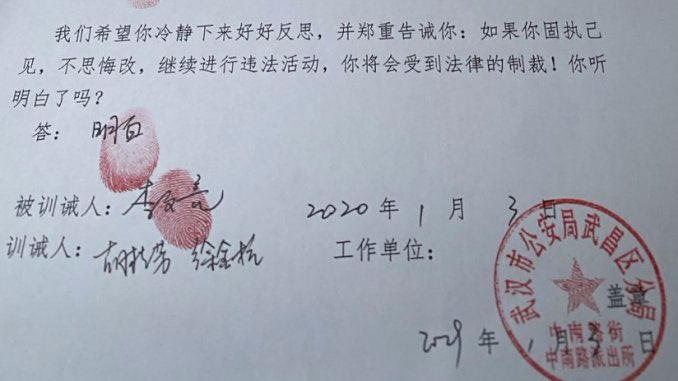 我们希望你冷静下来好好反思，并郑重告诫你：如果你固执己
见，不思悔改，继续进行违法活动，你将会受到法律的制裁！你听
明白了吗？
答： 明白
被训诫人：李文亮 2020 年 1 月 3 日
训诫人： 工作单位：
武汉市公安局武昌区分局
盖章
中南路街
中南路派出所
年 1 月 3 日